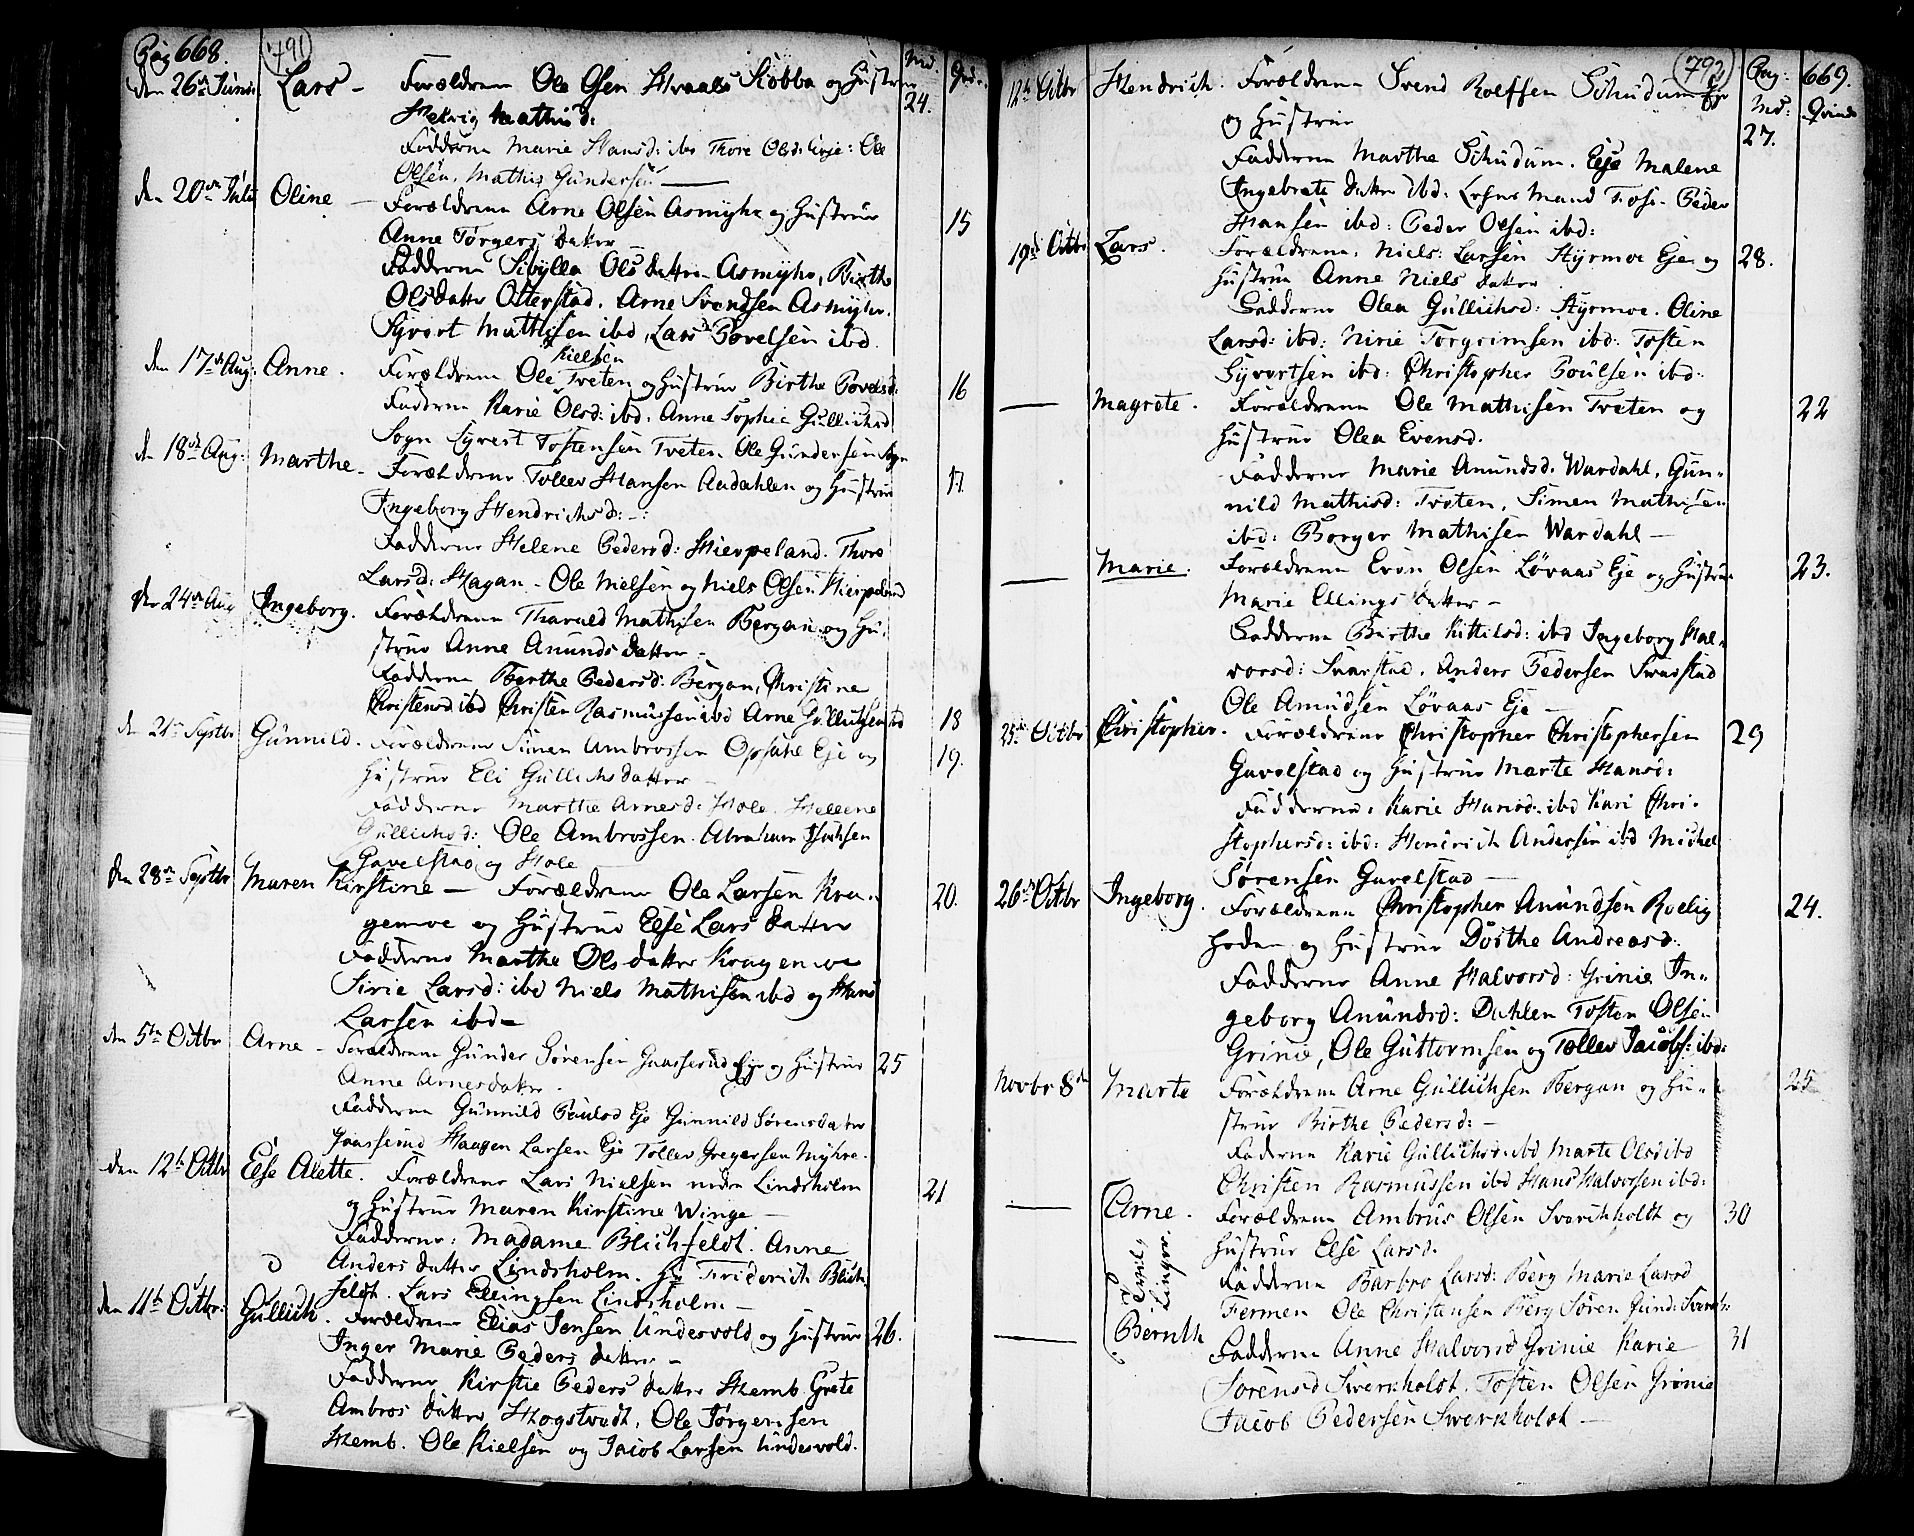 Pag 668. 791 Md. Qvd.
den 26de Junii Lars – Forældrene Ole Olsen Skobba og Hustrue 24.
Helvig Mathisd:
Fadderne Marie Hansd: ibd Thore Olsd: Eje: Ole
Olsen, Mathis Gundersen —
den 20de Julii Oline – Forældrene Arne Olsen Asmyhr og Hustrue 15
Anne Torgers datter
Fadderne Sibylla Ols datter Asmyhr, Birthe
Olsdatter Otterstad. Arne Svendsen Asmyhr.
Syvert Mathisen ibd, Lars Povelsen ibd.
den 17de Aug: Anne. Forældrene Ole Kielsen Tveten og Hustrue Birthe Povelsd: 16
Fadderne Karie Olsd: ibd. Anne Sophie Gullichsd
Sogn Syvert Tostensen Tveten. Ole Gundersen Sogn
den 18de Aug: Marthe – Forældrene Tollev Hansen Aadahlen og Hustrue 17
Ingeborg Hendrichsd: –
Fadderne Helene Pedersd: Hierpeland. Thore
Larsd: Hagan – Ole Nielsen og Niels Olsen Hierpeland
den 24de Aug Ingeborg. Forældrene Tharald Mathisen Bergan og Hu-
strue Anne Anunds datter –
Fadderne Berthe Pedersd: Bergan, Christine
Christensd. ibd Christen Rasmussen ibd Arne Gullichsen 18
den 21de Septbr Gunnild. Forældrene Simen Ambrossen Opsahl Eje og 19.
Hustrue Eli Gullichsdatter –
Fadderne Marthe Arnesd: Hole. Hellene
Gullichsd: Ole Ambrossen. Abraham Isachsen
Gavelstad og Hole –
den 28de Septbr Maren Kirstine – Forældrene Ole Larsen Kra- 20.
gemoe og Hustrue Else Lars datter
Fadderne Marthe Ols datter Kragemoe
Sirie Larsd: ibd Niels Mathisen ibd og Hans
Larsen ibd –
den 5te Octbr Arne – Forældrene Gunder Sørensen Gaaserud Eje og Hustrue 25
Anne Arnesdatter.
Fadderne Gunnild Paulsd Eje Gunnild Sørensdatter
Gaaserud Haagen Larsen Eje Tollev Gregersen Myhre.
den 12te Octbr Else Alette. Forældrene Lars Nielsen nedre Lindsholm 21
og Hustrue Maren Kirstine Winge –
Fadderne: Madame Blichfeldt. Anne
Anders datter Lindsholm. Hr Friderich Blich-
feldt. Lars Ellingsen Lindsholm –
den 11te Octbr: Gullich. Forældrene Elias Jensen Undersvold og Hustrue 26.
Inger Marie Peders datter –
Fadderne Kirstie Peders datter Skemb. Grete
Ambros datter Skogstvedt. Ole Jørgensen
Skemb. Ole Kielsen og Jacob Larsen Undersvold.
792 Pag: 669.
Md: Qvinde
12te Octbr Hendrich. Forældrene Svend Rolfsen Schudum Eje 27.
og Hustrue
Fadderne Marthe Schudum. Eje Malene
Ingebrets datter ibd: Peder
Hansen ibd: Peder Olsen ibd:
19de Octbr Lars. Forældrene, Niels Larsen Styrmoe Eje og 28.
Hustrue Anne Niels datter
Fadderne Olea Gullichsd: Styrmoe. Oline
Larsd: ibd: Nirie Torgrimsen ibd: Tosten
Syvertsen ibd: Christopher Poulsen ibd:
— Magrete. Forældrene Ole Mathisen Tveten og 22
Hustrue Olea Evensd.
Fadderne Marie Anundsd. Wardahl, Gun-
nild Mathisd: Tveten, Simen Mathisen
ibd: Borger Mathisen Wardahl —
— Marie. Forældrene Even Olsen Løvaas Eje og Hustrue 23.
Marie Ellings datter –
Fadderne Birthe Kittilsd: ibd Ingeborg Hal-
vorsd: Svarstad. Anders Pedersen Svarstad
Ole Amudsen Løvaas Eje –
25de Octbr Christopher. Forældrene Christopher Christophersen 29
Gavelstad og Hustrue Marte Hansd:
Fadderne: Karie Hansd: ibd Kari Chri-
stophersd: ibd: Hendrich Andersen ibd Michel
Sørensen Gavelstad –
26de Octbr Ingeborg. Forældrene Christopher Anundsen Roelig 24.
Hoden og Hustrue Dorthe Andreasd:
Fadderne Anne Halvorsd: Grinie In-
geborg Anundsd: Dahlen Tosten Olsen
Grinie, Ole Guttormsen og Tollev Jacobs: ibd:
Novbr 8de Marte Forældrene Arne Gullichsen Bergan og Hu- 25
strue Birthe Pedersd: –
Faderne Karie Gullichsd: ibd Marte Olsd ibd
Christen Rasmussen ibd Hans Halvorsen ibd:
— Arne. Forældrene Ambrus Olsen Sverchholdt og 30
Hustrue Else Larsd.
Tvillinger.
Fadderne Barbro Larsd: Berg Marie Larsd
Fermen Ole Christensen Berg Søren Gund: Sverch:
— Bernth Fadderne Anne Halvorsd Grinie Karie 31
Sorensd Sverkholdt. Tosten Olsen Grinie
Jacob Pedersen Sverkholdt –